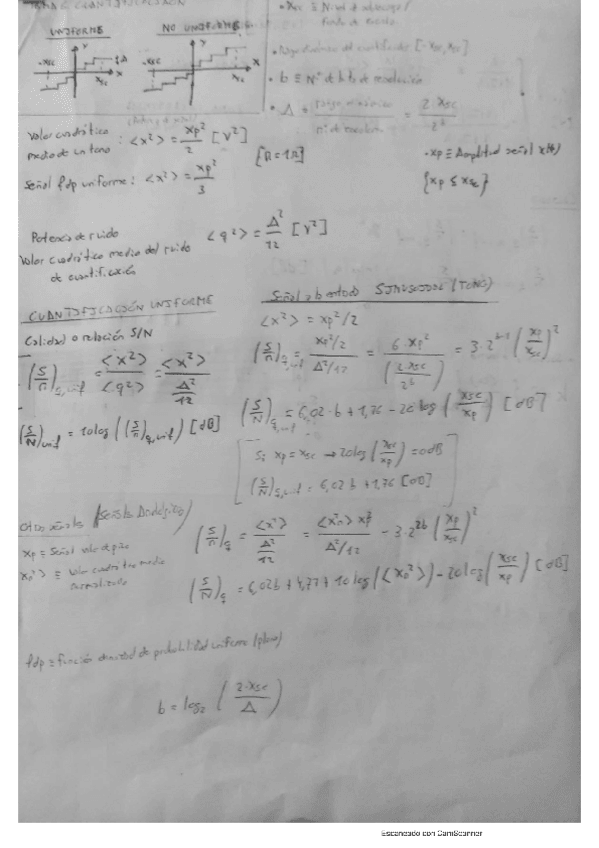 TEMA 6 CUANTIFICACIÓN
UNIFORME
NO UNIFORME
• Xsc ≡ Nivel de sobrecarga /
fondo de escala
• Rango dinámico del cuantificador [-Xsc, Xsc]
• b ≡ Nº de bits de resolución
• Δ = rango dinámico / nº de escalones = 2·Xsc / 2^b
Valor cuadrático
medio de un tono : <x²> = xp²/2 [V²]
[R=1Ω]
• xp ≡ Amplitud señal x(t)
{xp ≤ xsc}
Señal fdp uniforme : <x²> = xp²/3
Potencia de ruido
Valor cuadrático medio del ruido
de cuantificación
<q²> = Δ²/12 [V²]
CUANTIFICACIÓN UNIFORME
Calidad o relación S/N
(S/n)q,unif = <x²>/<q²> = <x²>/(Δ²/12)
(S/N)unif = 10log((S/n)q,unif) [dB]
Señal de entrada SINUSOIDAL (TONO)
<x²> = xp²/2
(S/n)q,unif = (xp²/2)/(Δ²/12) = 6·xp²/(2·xsc/2^b) = 3·2^(b-1) (xp/xsc)²
(S/N)q,unif = 6,02·b + 1,76 - 20log(xsc/xp) [dB]
Si xp = xsc → 20log(xsc/xp) = 0dB
(S/N)q,unif = 6,02b + 1,76 [dB]
Otras señales (Señales Analógicas)
xp ≡ Señal valor de pico
<xn²> ≡ Valor cuadrático medio
normalizado
(S/n)q = <x²>/(Δ²/12) = <xn²>xp²/(Δ²/12) = 3·2^(2b) (xp/xsc)²
(S/N)q = 6,02b + 4,77 + 10log(<xn²>) - 20log(xsc/xp) [dB]
fdp ≡ función densidad de probabilidad uniforme (plana)
b = log₂(2·xsc/Δ)
Escaneado con CamScanner